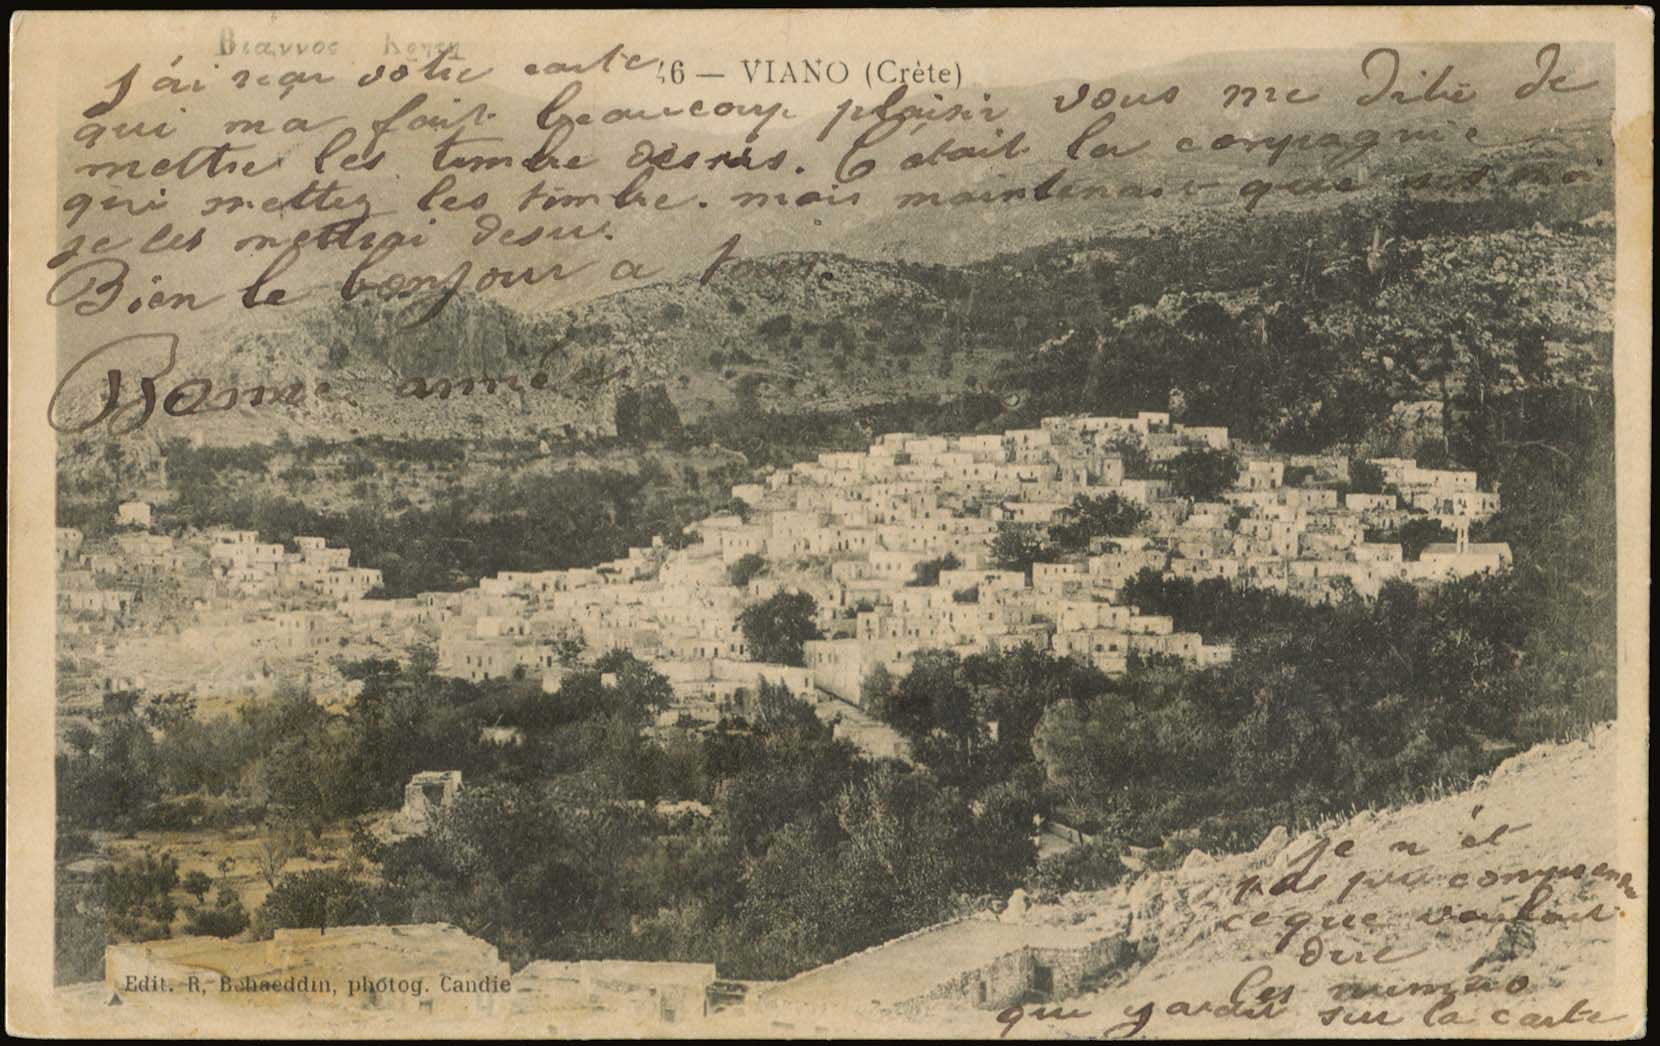 Βιαννος Κρητη
46 — VIANO (Crète)
J'ai reçu votre carte
qui ma fait beaucoup plaisir vous me dite de
mettre les timbre desus. C'était la compagnie
qui mettez les timbre. mais maintenant que
je les mettrai desus.
Bien le bonjour a tous.
Bonne année
je n'ét
pas pu comprendre
ceque voulait
dire
les numéro
que
sur la carte
Edit. R. Behaeddin, photog. Candie